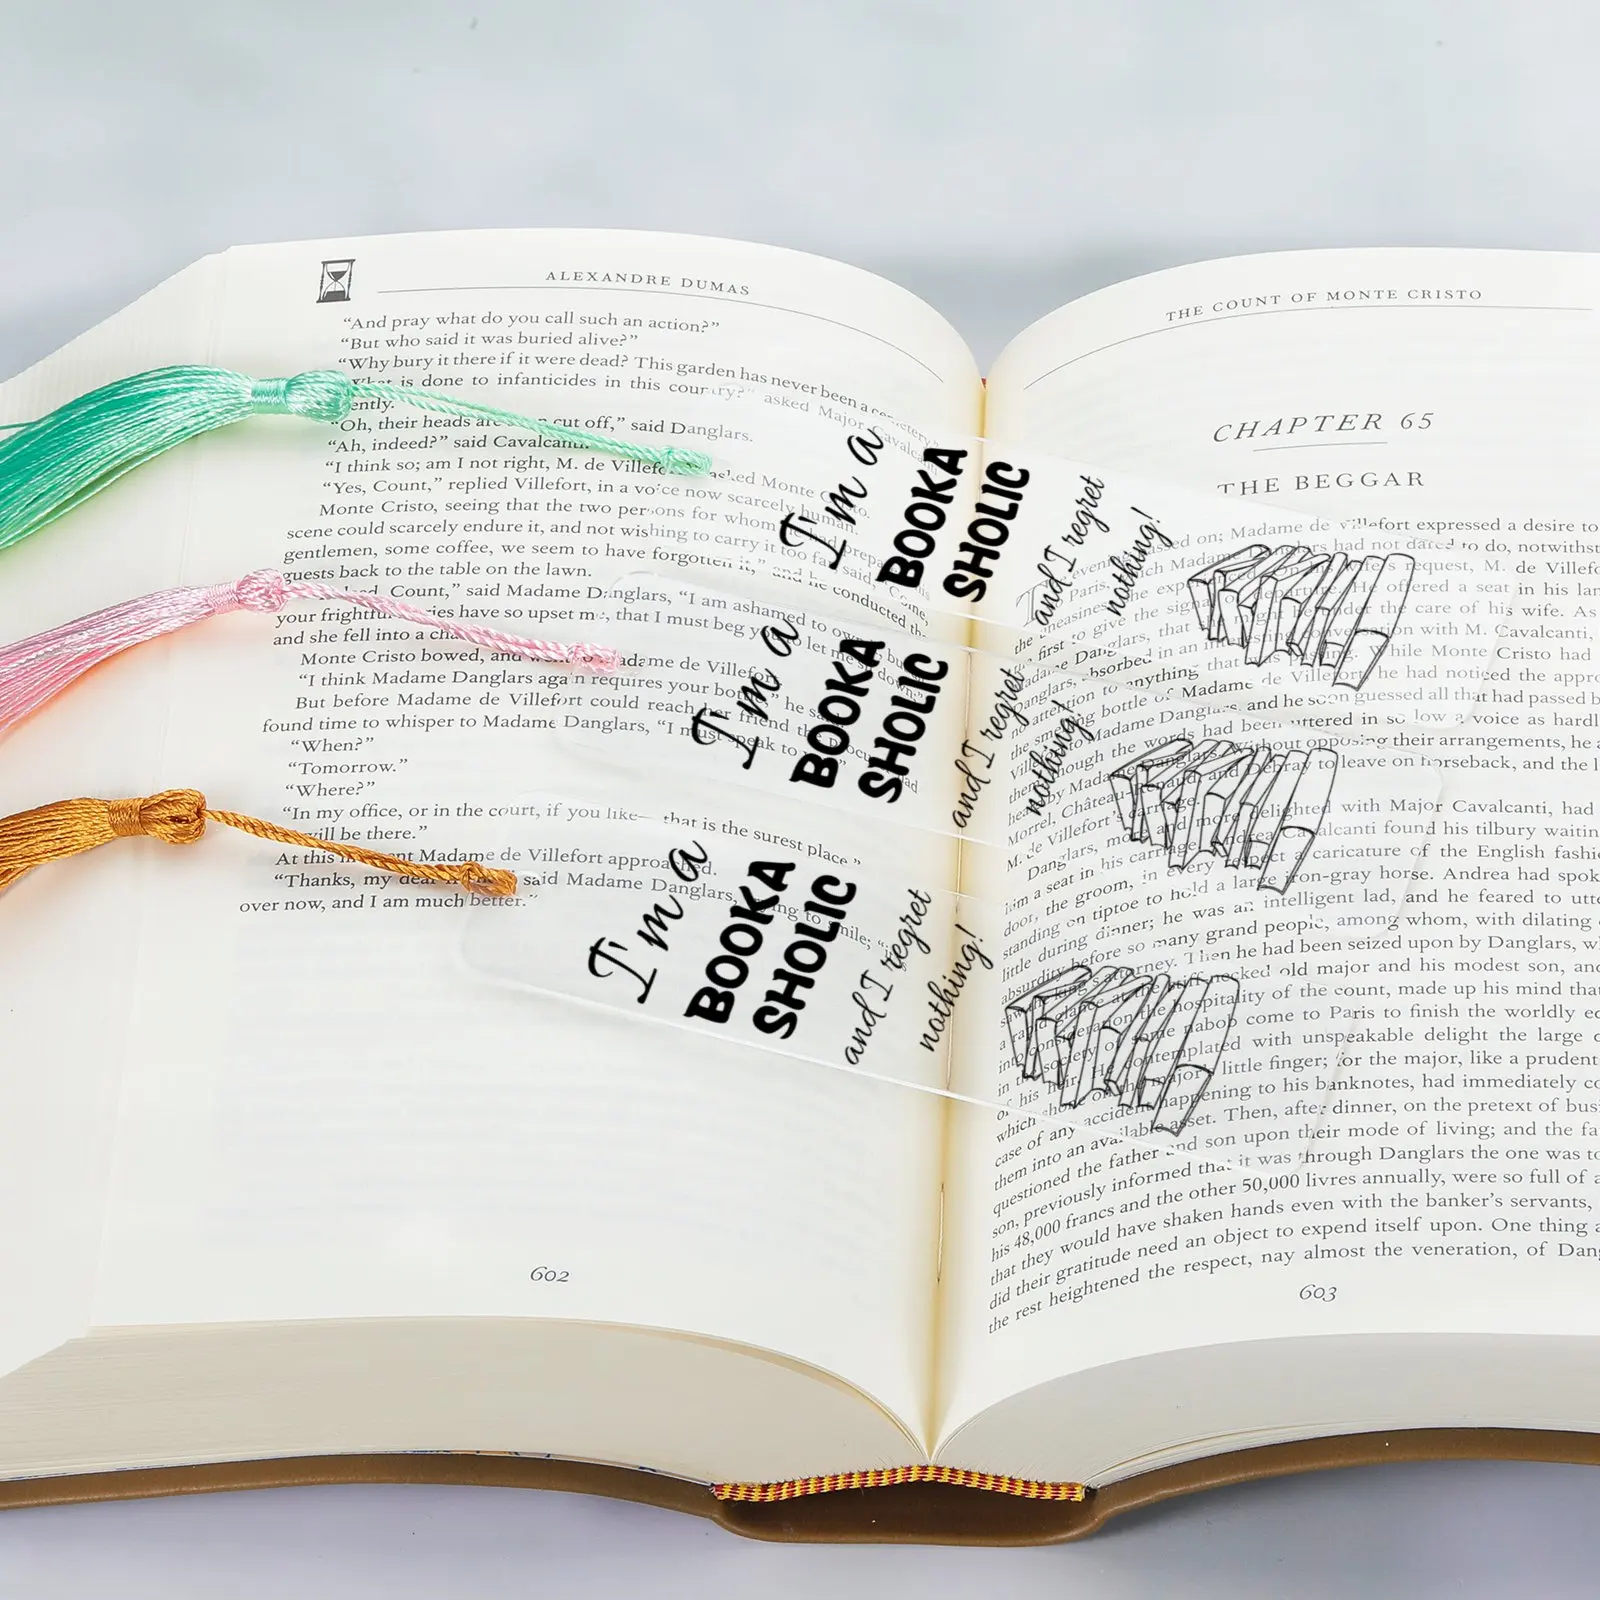 ALEXANDRE DUMAS
“And pray what do you call such an action?”
“But who said it was buried alive?”
“Why bury it there if it were dead? This garden has never been a cemetery.”
is done to infanticides in this country?” asked Major Cavalcanti
ently.
“Oh, their heads are cut off,” said Danglars.
“Ah, indeed?” said Cavalcanti.
“I think so; am I not right, M. de Villefort asked Monte
“Yes, Count,” replied Villefort, in a voice now scarcely human.
Monte Cristo, seeing that the two persons for whom he had prepared
scene could scarcely endure it, and not wishing to carry it too far, said, “Come,
gentlemen, some coffee, we seem to have forgotten it,” and he conducted the
guests back to the table on the lawn.
Count,” said Madame Danglars, “I am ashamed to own
your frightful stories have so upset me, that I must beg you to let me sit down;”
and she fell into a
Monte Cristo bowed, and went to Madame de Villefort
“I think Madame Danglars again requires your bottle,” he said
But before Madame de Villefort could reach her friend the procureur had
found time to whisper to Madame Danglars, “I must speak to
“When?”
“Tomorrow.”
“Where?”
“In my office, or in the court, if you like—that is the surest place.”
will be there.”
At this moment Madame de Villefort approached.
“Thanks, my dear said Madame Danglars, trying to smile; “
over now, and I am much better.”
602
THE COUNT OF MONTE CRISTO
CHAPTER 65
THE BEGGAR
The evening passed on; Madame de Villefort expressed a desire to
Paris, which Madame Danglars had not dared to do, notwithst
uneasiness she experienced On his wife's request, M. de Villefo
the first to give the signal of departure. He offered a seat in his lan
Madame Danglars, that she might be under the care of his wife. As
Danglars, absorbed in an interesting conversation with M. Cavalcanti,
no attention to anything that was passing. While Monte Cristo had
the smelling bottle of Madame de Villefort, he had noticed the appro
Villefort to Madame Danglars, and he soon guessed all that had passed b
them, though the words had been uttered in so low a voice as hardl
by Madame Danglars. Without opposing their arrangements, he a
Morrel, Château-Renaud, and Debray to leave on horseback, and the l
M. de Villefort's carriage.
Danglars, more and more delighted with Major Cavalcanti, had
him a seat in his carriage. Andrea Cavalcanti found his tilbury waitin
door; the groom, in every respect a caricature of the English fashi
standing on tiptoe to hold a large iron-gray horse. Andrea had spok
little during dinner; he was an intelligent lad, and he feared to utte
absurdity before so many grand people, among whom, with dilating
saw the king's attorney. Then he had been seized upon by Danglars, w
a rapid glance at the stiff-necked old major and his modest son, and
into consideration the hospitality of the count, made up his mind that
in the society of some nabob come to Paris to finish the worldly ed
of his heir. He contemplated with unspeakable delight the large d
which shone on the major's little finger; for the major, like a prudent
case of any accident happening to his banknotes, had immediately co
them into an available asset. Then, after dinner, on the pretext of busi
questioned the father and son upon their mode of living; and the fa
son, previously informed that it was through Danglars the one was to
his 48,000 francs and the other 50,000 livres annually, were so full of a
that they would have shaken hands even with the banker's servants,
did their gratitude need an object to expend itself upon. One thing a
the rest heightened the respect, nay almost the veneration, of Dang
603
I'm a
BOOKA
SHOLIC
and I regret
nothing!
I'm a
BOOKA
SHOLIC
and I regret
nothing!
I'm a
BOOKA
SHOLIC
and I regret
nothing!